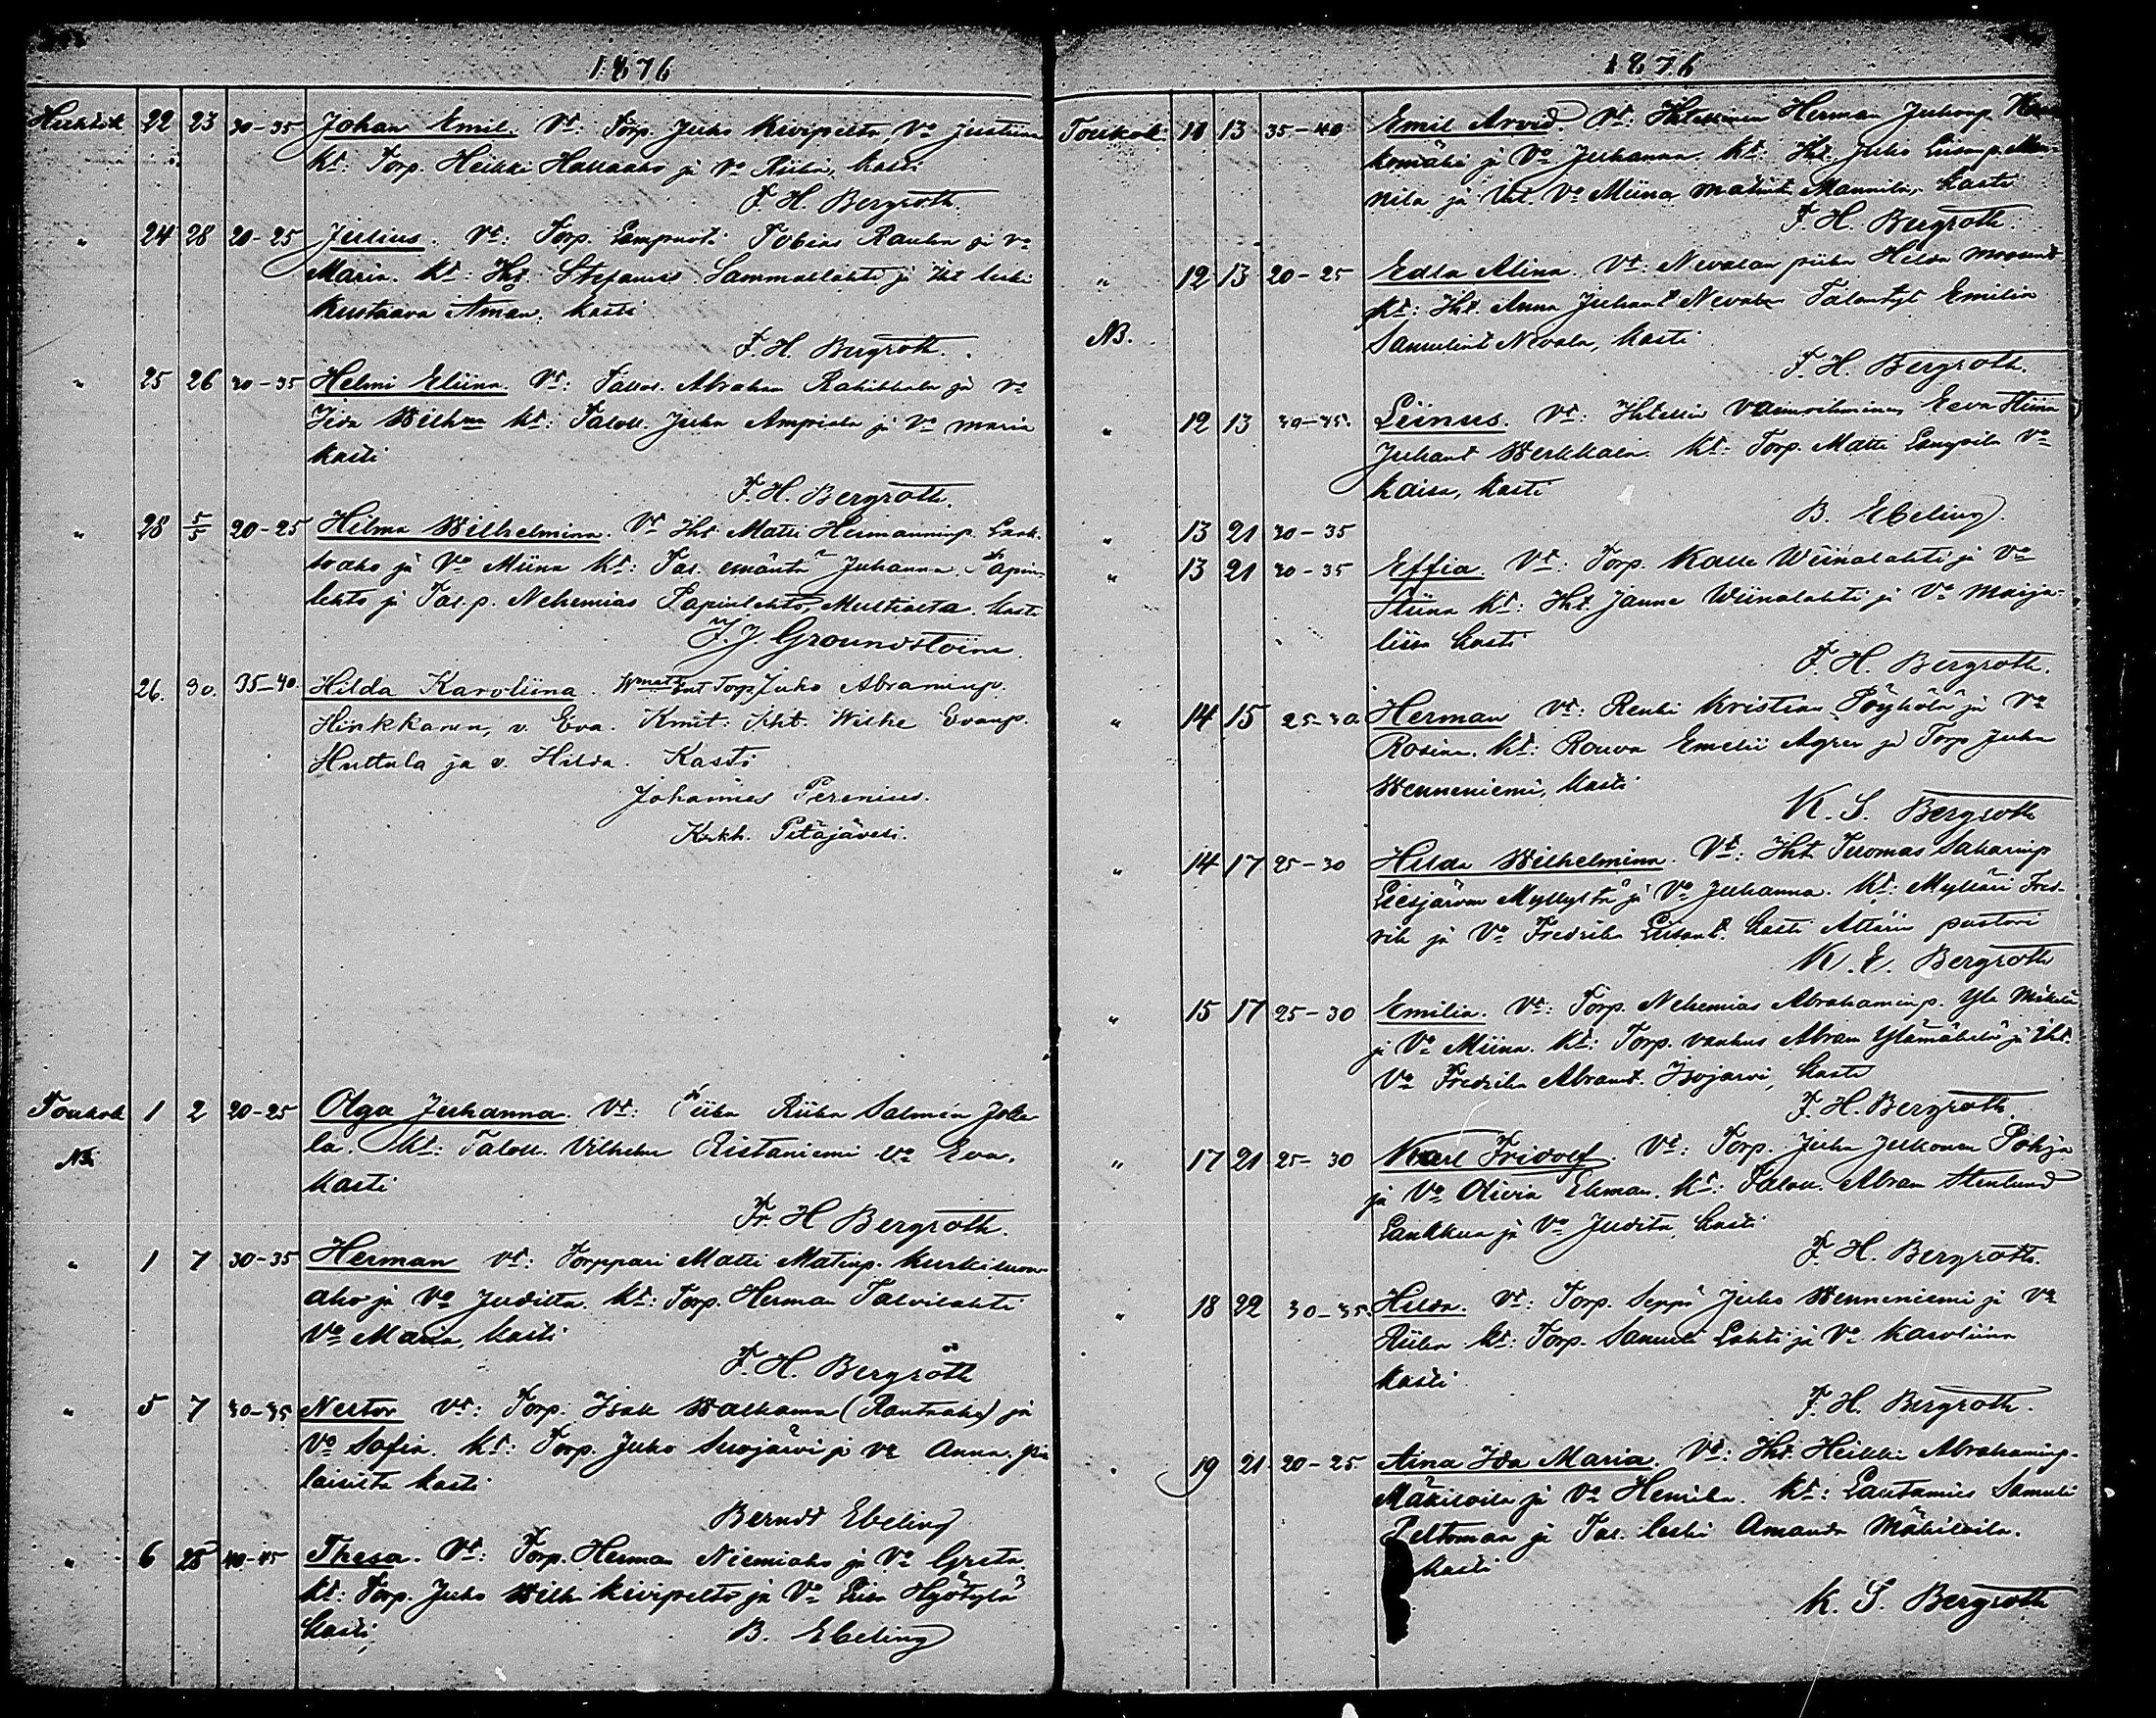 1876
Huhtik 22 23 30-35 Johan Emil. Vt: Torp. Juho Kivipelto, Vo Justiina
Kt: Torp. Heikki Hallaaho ja Vo Riika, kasti
F. H. Bergroth.
" 24 28 20-25 Julius. Vt: Torp. Lampuoti Tobias Rauha ja vo
Maria. Kt: Iht. Stefanus Sammallahti ja Iht leski
Kustaava Åman. Kasti
F. H. Bergroth.
" 25 26 30-35 Helmi Eliina. Vt: Talol. Abraham Rahikkala ja vo
Iida Wilhma Kt: Taloll. Juha Ampiala ja Vo Maria
kasti
F. H. Bergroth.
" 28 5/5 20-25 Hilma Wilhelmina. Vt Iht. Matti Hermanninp. Laak-
soaho ja Vo Miina Kt: Tal. emäntä Juhanna Papin-
lehto ja Tal.p. Nehemias Papinlehto, Multialta. kasti
J. J. Groundstöim
26. 30. 35-40. Hilda Karoliina. Wmat Ent Torp. Juho Abraminp.
Hinkkanen, v. Eva. Kmit: Iht. Wilhe Evanp.
Huttula ja v. Hilda. Kasti
Johannes Perenius.
Kirkh. Petäjävesi.
Toukok 1 2 20-25 Olga Juhanna. Vt: Piika Riika Salmén Jokela
NB. la. Kt: Taloll. Vilhelm Ristaniemi Vo Eva.
kasti
Fr H Bergroth.
" 1 7 30-35 Herman Vt: Torppari Matti Matinp. Kuskiluoma
aho ja Vo Juditta Kt: Torp. Herman Talvilahti
Vo Maria, kasti
F. H. Bergroth
" 5 7 30-35 Nestor Vt: Torp. Isak Walkama (Rautaaho) ja
Vo Sofia. Kt: Torp. Juho Suojärvi ja Vo Anna,
laisilta kasti
Berndt Ebeling
" 6 25 40-45 Thesa. Vt: Torp. Herman Niemiaho ja Vo Greta
Kt: Torp. Juho Wilh. Kivipelto ja Vo Liisa Hyötylä
kasti,
B. Ebeling
1876
Toukok. 11 13 35-40 Emil Arvid. Vt: Ihtellinen Herman Juhonp.
komäki ja Vo Juhanna. Kt: Iht. Juho Liisanp. Man-
nila ja Iht. Vo Miina Mannila, kasti
F. H. Bergroth.
" 12 13 20-25 Edla Alina. Vt: Nevalan piika Hilda
Kt: Iht. Anna Juhant Nevala Talontyt Emilia
NB. Samulint Nevala, kasti
F. H. Bergroth.
" 12 13 40-45. Liinus. Vt: Ihtellis Vaimoihminen Eeva Stiina
Juhant Werkkala. Kt: Torp. Matti Lampila Vo
Kaisa, kasti
B. Ebeling.
" 13 21 30-35
" 13 21 30-35 Effia. Vt: Torp. Kalle Wiinalahti ja Vo
Stiina Kt: Iht. Janne Wiinalahti ja Vo Maija-
liisa kasti
F. H. Bergroth.
" 14 15 25-30 Herman Vt: Renki Kristian Pöyhölä ja Vo
Rosina. Kt: Rouva Emelii Agren ja Torp. Juha
Wenneniemi, kasti
K. S. Bergroth
" 14 17 25-30 Hilda Wilhelmina. Vt: Iht Tuomas Sakarinp
Liesjärven Myllyltä ja Vo Juhanna. Kt: Mylläri Fred-
rik ja Vo Fredrika Liisant. kasti Attärin pastori
K. E. Bergroth
" 15 17 25-30 Emilia. Vt: Torp. Nehemias Abrahaminp. Yli Mäkelä
ja Vo Miina. Kt: Torp. vanhus Abram Ylämäkelä ja Iht.
Vo Fredrika Abramt. Isojärvi, kasti
F. H. Bergroth.
" 17 21 25-30 Karl Fridolf. Vt: Torp. Juha Julkonen Pohja
ja Vo Olivia Ekman. Kt: Taloll. Abram Stenlund
Laukkua ja Vo Judita, kasti
F. H. Bergroth.
" 18 22 30-35. Hilda. Vt: Torp. Seppä Juho Wenneniemi ja Vo
Riika Kt: Torp. Samuli Lahti ja Vo Karoliina
kasti
F. H. Bergroth.
" 19 21 20-25. Aina Ida Maria. Vt: Iht. Heikki Abrahaminp.
Mäkilaila ja Vo Henrika. Kt: Lautamies Samuli
Peltomaa ja Tal. leski Amanda Mäkilaila.
kasti
K. S. Bergroth